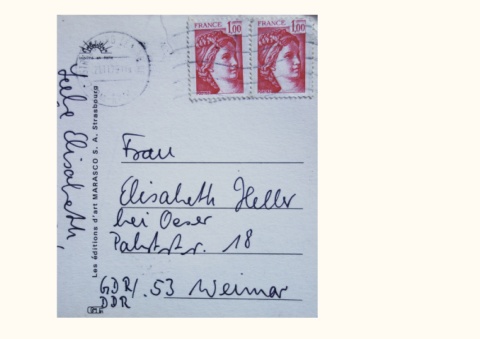 FRANCE 1,00
FRANCE 1,00
Liebe Elisabeth,
Les éditions d'art MARASCO S. A. Strasbourg
Frau
Elisabeth Heller
bei Oeser
18
GDR/ . 53 Weimar
DDR